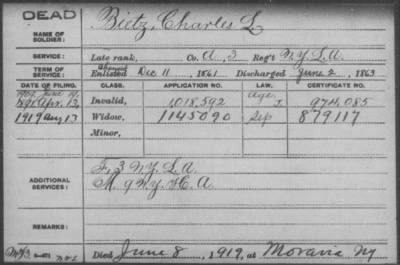 DEAD
NAME OF SOLDIER: Bietz, Charles L.
SERVICE: Late rank, Co. A, 3 Reg't N.Y.L.A.
TERM OF SERVICE: Enlisted Dec 11, 1861 Discharged June 2, 1863
DATE OF FILING. CLASS. APPLICATION NO. LAW. CERTIFICATE NO.
1891 Apr. 13, Invalid, 1,018,592 974,085
1919 Aug 13 Widow, 1145090 Sep 879117
Minor,
ADDITIONAL SERVICES: F, 3 N.Y. L. A.
M. 9 N.Y. H. A.
REMARKS:
Died June 8, 1919, at Moravia Ny